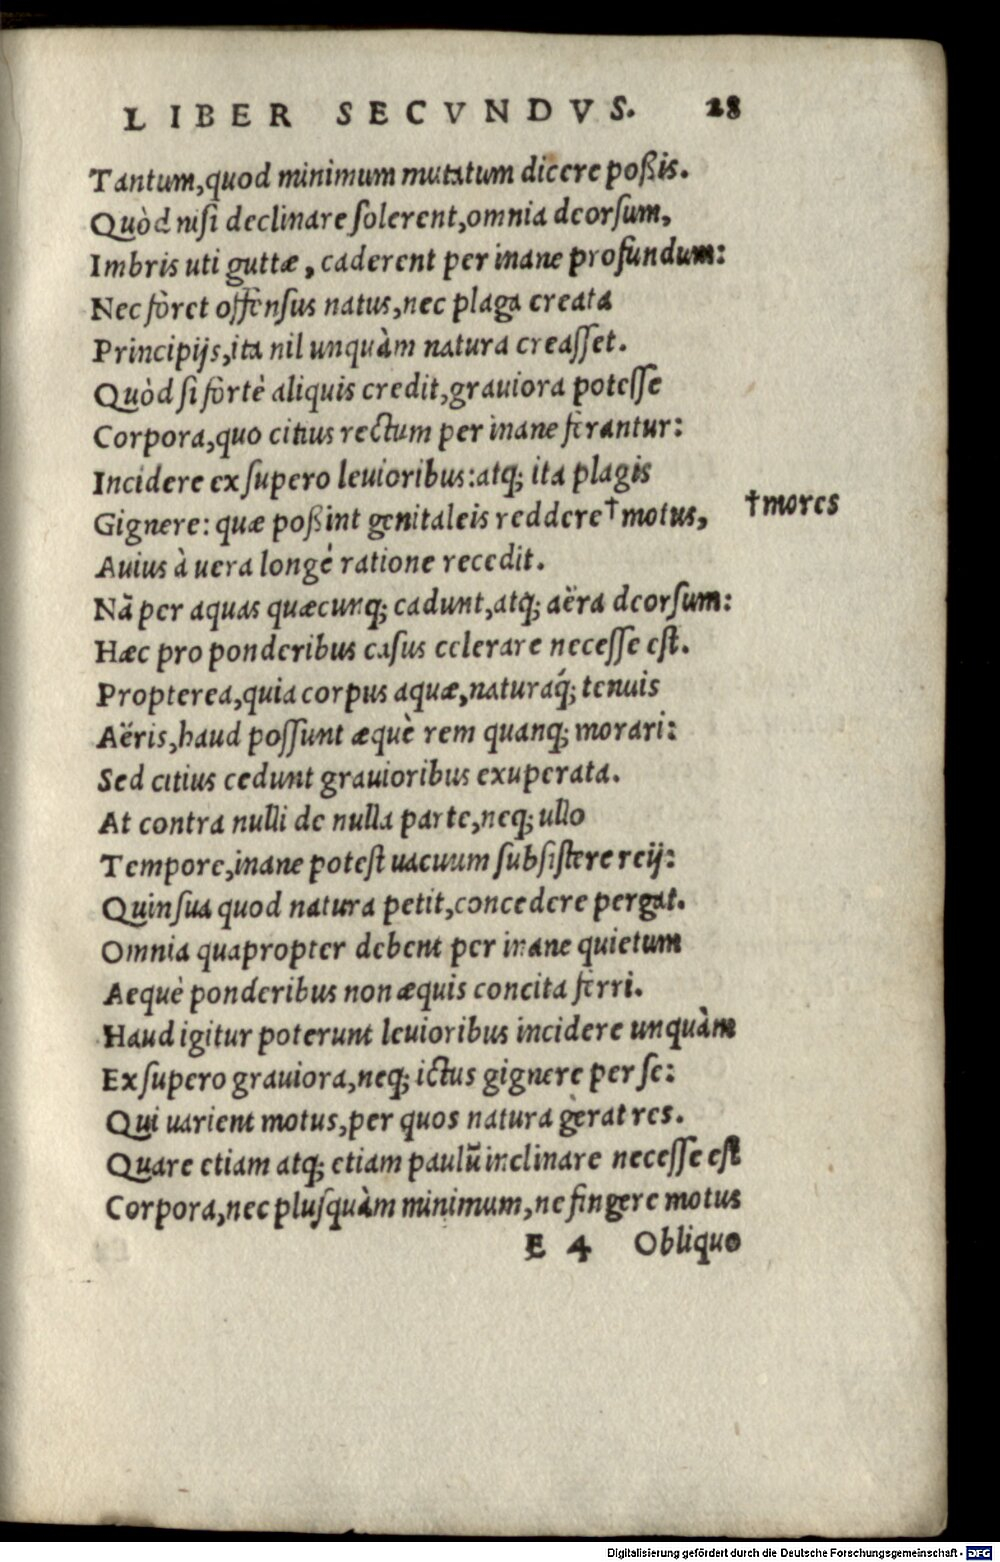 LIBER SECVNDVS. 28
Tantum,quod minimum mutatum dicere poßis.
Quòd nisi declinare ſolerent,omnia deorſum,
Imbris uti guttæ, caderent per inane profundum:
Nec fòret offenſus natus,nec plaga creata
Principijs,ita nil unquàm natura creaſſet.
Quòd ſi fortè aliquis credit,grauiora poteſſe
Corpora,quo citius rectum per inane ferantur:
Incidere ex ſupero leuioribus:atq; ita plagis
Gignere: quæ poßint genitaleis reddere †motus,
†mores
Auius à uera longé ratione recedit.
Nã per aquas quæcunq; cadunt,atq; aëra deorſum:
Hæc pro ponderibus caſus celerare neceſſe eſt.
Propterea,quia corpus aquæ,naturaq́; tenuis
Aëris,haud poſſunt æquè rem quanq; morari:
Sed citius cedunt grauioribus exuperata.
At contra nulli de nulla parte,neq; ullo
Tempore,inane poteſt uacuum ſubſiſtere reij:
Quin ſua quod natura petit,concedere pergat.
Omnia quapropter debent per inane quietum
Aequè ponderibus non æquis concita ferri.
Haud igitur poterunt leuioribus incidere unquàm
Ex ſupero grauiora,neq; ictus gignere per ſe:
Qui uarient motus,per quos natura gerat res.
Quare etiam atq; etiam paulũ inclinare neceſſe eſt
Corpora,nec pluſquàm minimum,ne fingere motus
E 4 Obliquo
Digitalisierung gefördert durch die Deutsche Forschungsgemeinschaft - DFG